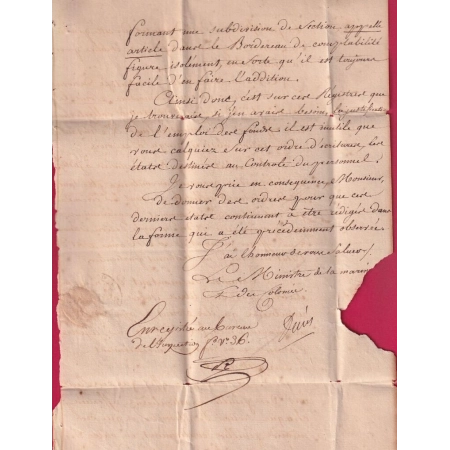 formant une subdivision de section appellé
article dans le Bordereau de comptabilité
figure isolement, en sorte qu'il est toujours
facile d'en faire l'addition.
Ainsi donc, c'est sur ces Registres que
je trouverai si j'en avais besoin, la justification
de l'emploi des fonds. il est inutile que
vous calquiez sur cet ordre d'écritures, les
états destinés au Controle du personnel.
Je vous prie en conséquence, Monsieur,
de donner des ordres pour que ces
derniers états continuent à être rédigés dans
la forme qui a été précédemment observée.
J'ai l'honneur de vous saluer.
Le Ministre de la marine
& des Colonies
Enregistré au Bureau
de l'Inspection f.º 36.